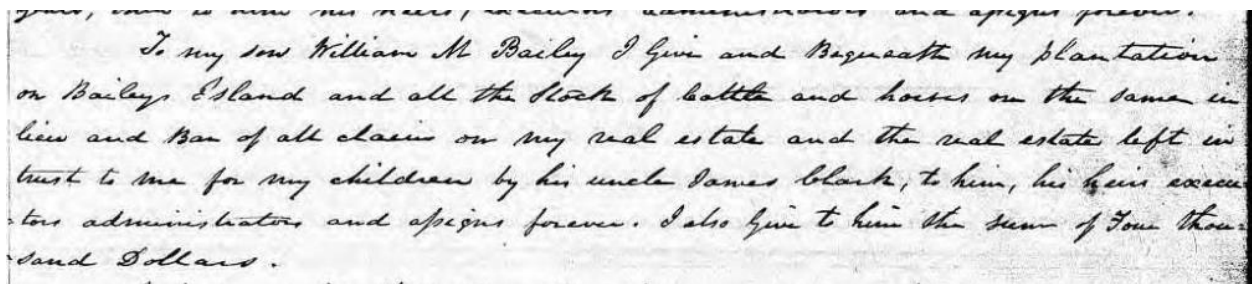 heirs, executors administrators and assigns forever.
To my son William M Bailey I Give and Bequeath my plantation
on Baileys Island and all the Stock of Cattle and horses on the same in
lieu and Bar of all claim on my real estate and the real estate left in
trust to me for my children by his uncle James Clark, to him, his heirs execu
-tors administrators and assigns forever. I also Give to him the sum of Four thou-
-sand Dollars.